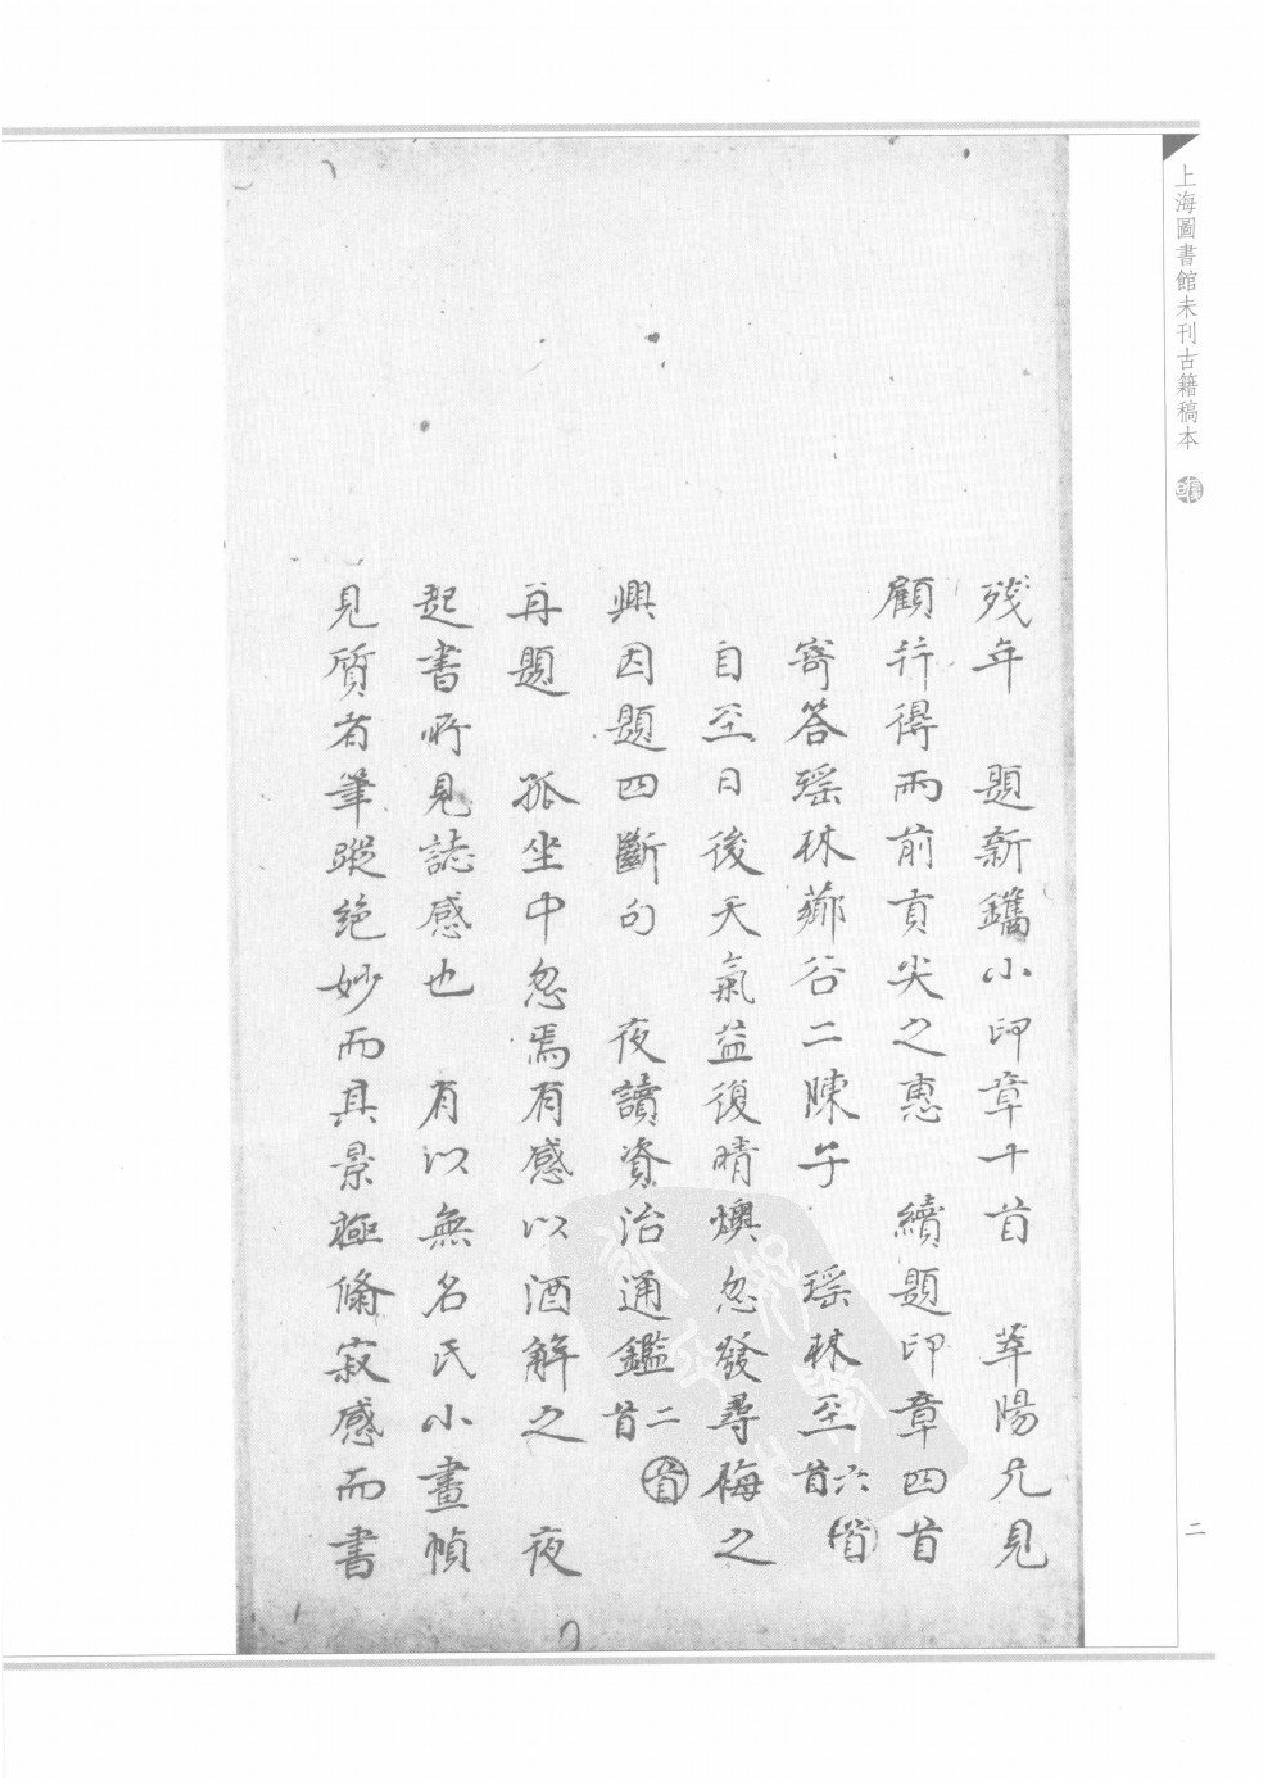 上海圖書館未刊古籍稿本
二
残年　題新鐫小印章十首　華陽兄見
顧并得雨前貢尖之惠　續題印章四首
寄答瑶林薌谷二陳子　瑶林至六首
自至日後天氣益復晴燠忽發尋梅之
興因題四斷句　夜讀資治通鑑二首
再題　孤坐中忽焉有感以酒解之　夜
起書所見誌感也　有以無名氏小畫幀
見質者筆蹤絶妙而其景極翛寂感而書